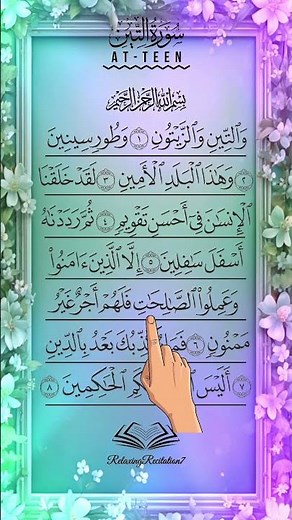 سُورَةُ التِّينِ
AT-TEEN
بِسْمِ اللَّهِ الرَّحْمَٰنِ الرَّحِيمِ
وَٱلتِّينِ وَٱلزَّيْتُونِ ١ وَطُورِ سِينِينَ
٢ وَهَٰذَا ٱلْبَلَدِ ٱلْأَمِينِ ٣ لَقَدْ خَلَقْنَا
ٱلْإِنسَٰنَ فِىٓ أَحْسَنِ تَقْوِيمٍ ٤ ثُمَّ رَدَدْنَٰهُ
أَسْفَلَ سَٰفِلِينَ ٥ إِلَّا ٱلَّذِينَ ءَامَنُوا۟
وَعَمِلُوا۟ ٱلصَّٰلِحَٰتِ فَلَهُمْ أَجْرٌ غَيْرُ
مَمْنُونٍ ٦ بَعْدُ بِٱلدِّينِ
٧ أَلَيْسَ ٱلْحَٰكِمِينَ ٨
RelaxingRecitation7